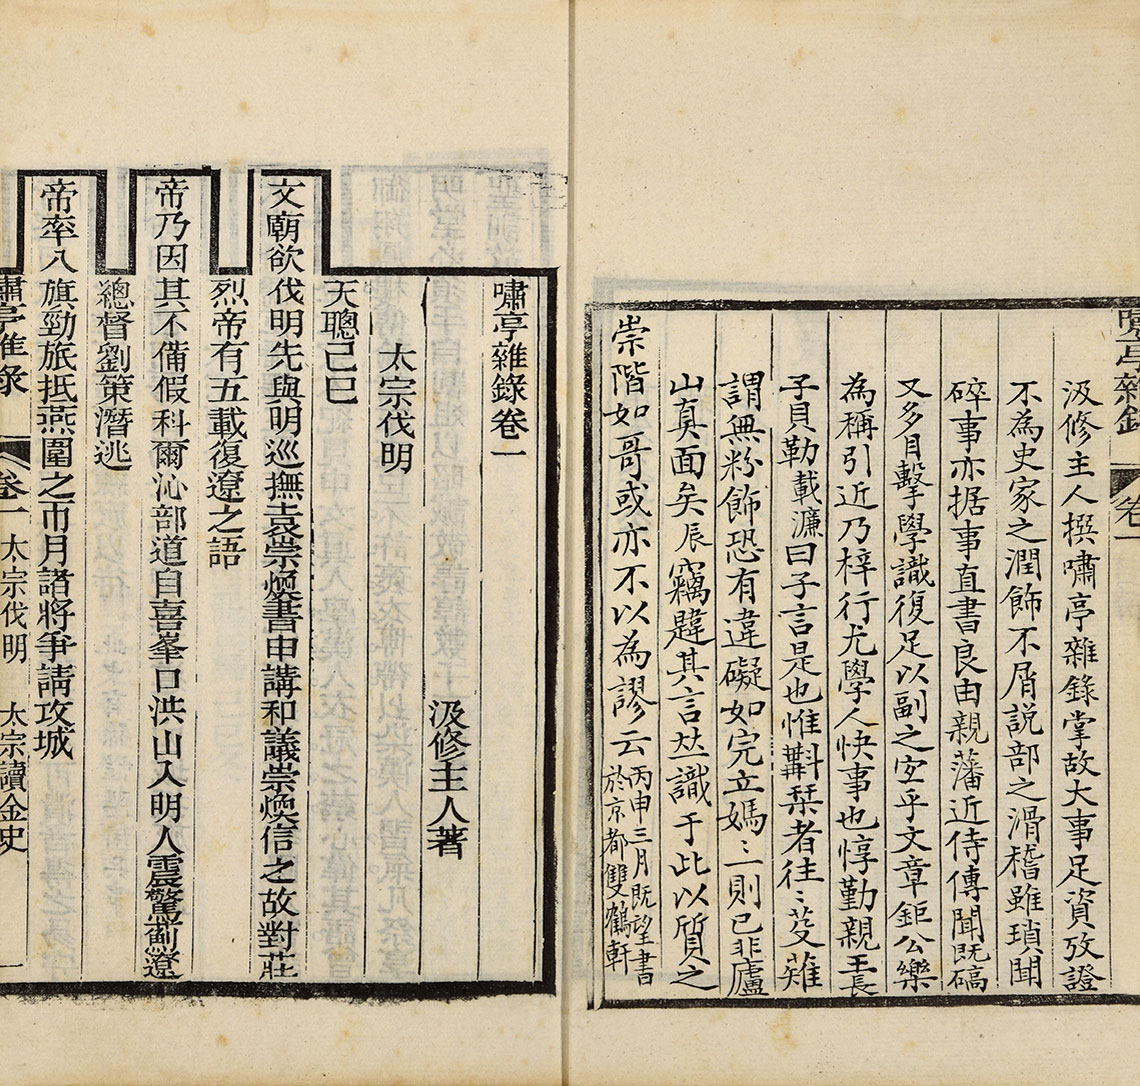 汲修主人撰嘯亭雜錄掌故大事足資攷證
不為史家之潤飾不屑說部之滑稽雖瑣聞
碎事亦据事直書良由親藩近侍傳聞既碻
又多目擊學識復足以副之宐乎文章鉅公樂
為稱引近乃梓行尤學人快事也惇勤親王長
子貝勒載濂曰子言是也惟斠栞者往〻芟薙
謂無粉飾恐有違礙如完立媽〻一則已非廬
山真面矣辰竊韙其言玆識于此以質之
崇階如哥或亦不以為謬云丙申三月既望書
於京都雙鶴軒
嘯亭雜錄
卷一
嘯亭雜錄卷一
汲修主人著
太宗伐明
天聰己巳
文廟欲伐明先與明巡撫袁崇煥書申講和議崇煥信之故對莊
烈帝有五載復遼之語
帝乃因其不備假科爾沁部道自喜峯口洪山入明人震驚薊遼
總督劉策潛逃
帝率八旗勁旅抵燕圍之帀月諸將爭請攻城
嘯亭雜錄
卷一
太宗伐明
太宗讀金史
一